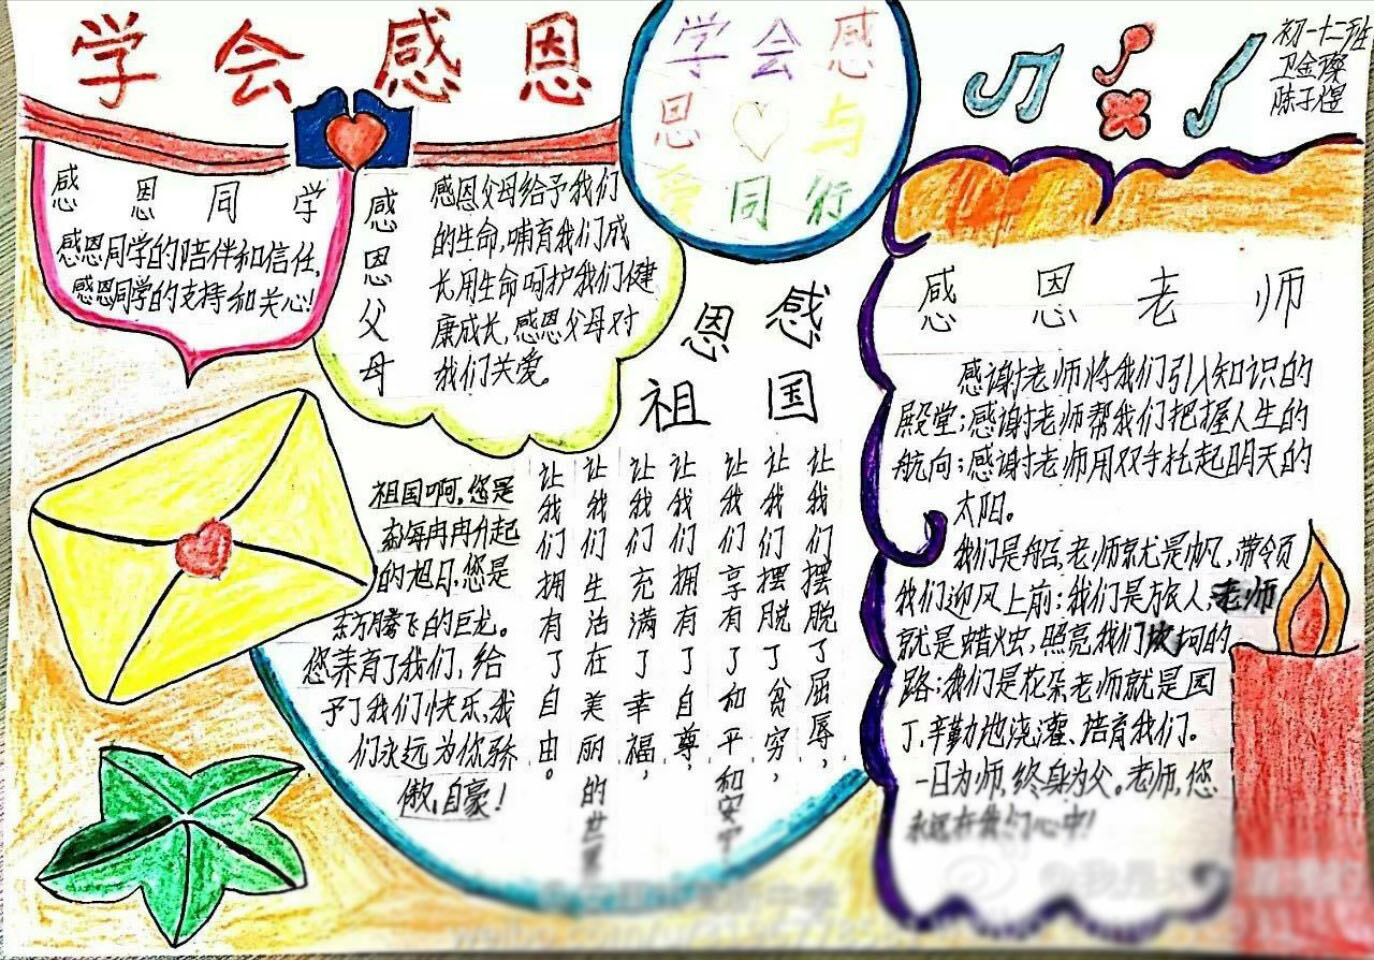 学会感恩
学会感
恩与
爱同行
初一十二班
卫金璨
陈子煜
感恩同学
感恩同学的陪伴和信任,
感恩同学的支持和关心!
感恩父母
感恩父母给予我们
的生命,哺育我们成
长用生命呵护我们健
康成长,感恩父母对
我们关爱。
感恩
祖国
让我们摆脱了屈辱,
让我们摆脱了贫穷,
让我们享有了和平和安宁
让我们拥有了自尊,
让我们充满了幸福,
让我们生活在美丽的世界
让我们拥有了自由。
祖国啊,您是
每冉冉升起
的旭日,您是
东方腾飞的巨龙。
您养育了我们,给
予了我们快乐,我
们永远为你骄
傲,自豪!
感恩老师
感谢老师将我们引入知识的
殿堂;感谢老师帮我们把握人生的
航向;感谢老师用双手托起明天的
太阳。
我们是船,老师就是帆,带领
我们迎风上前;我们是旅人,老师
就是蜡烛,照亮我们坎坷的
路;我们是花朵老师就是园
丁,辛勤地浇灌、培育我们。
一日为师,终身为父。老师,您
永远在我们心中!